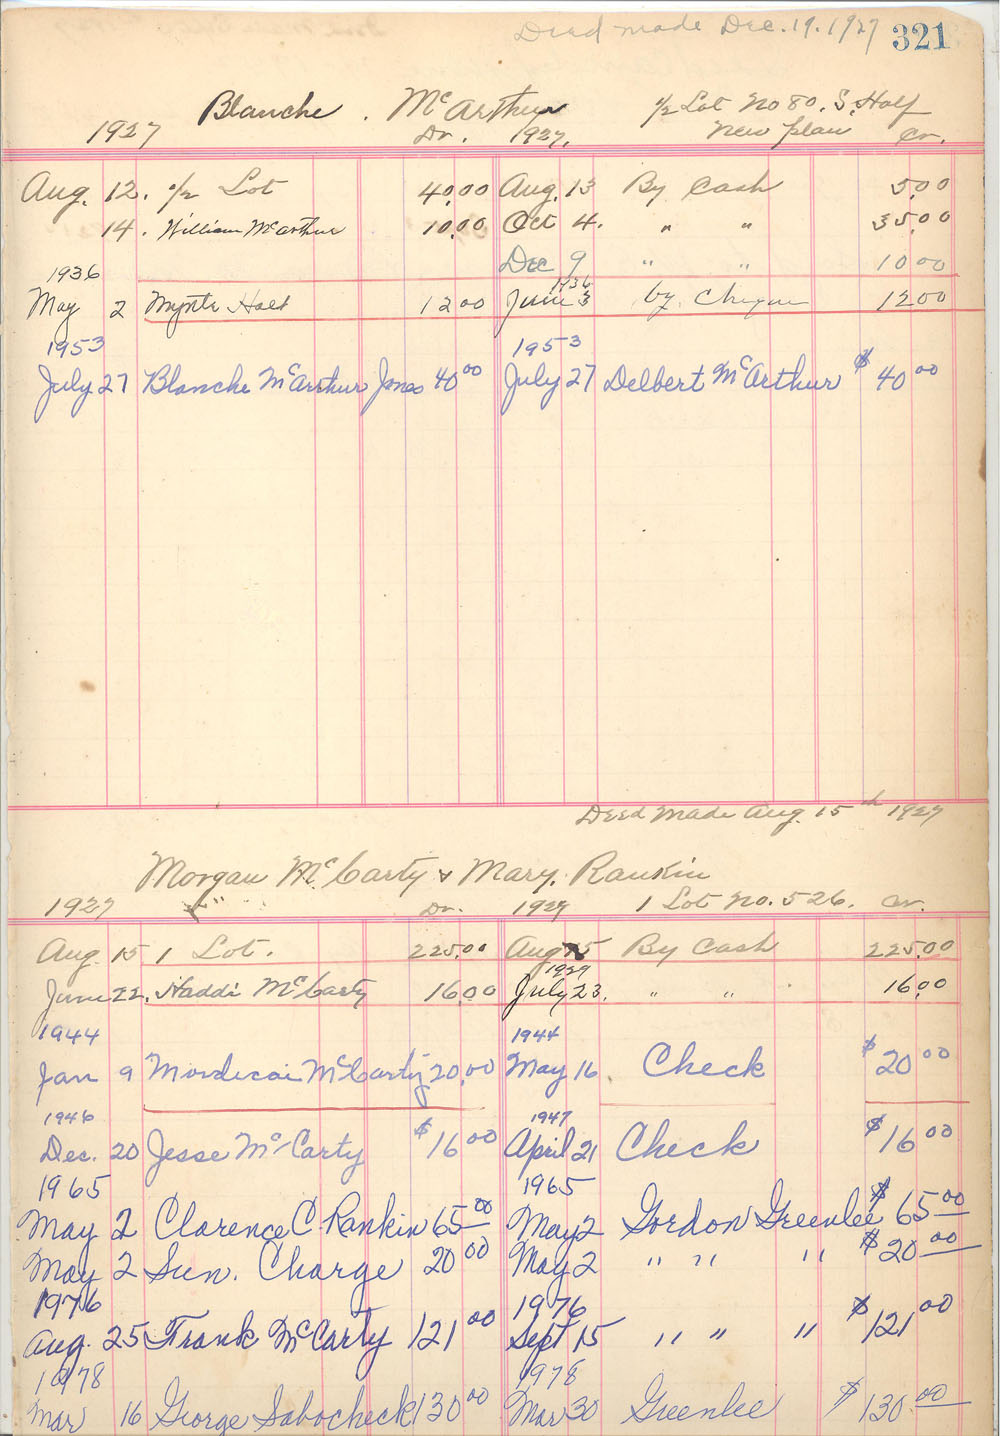 Deed made Dec. 19. 1927 321
Blanche McArthur 1/2 Lot No 80. S. Half
1927 Dr. 1927. New plan Cr.
Aug. 12. 1/2 Lot 40.00 Aug. 13 By Cash 5.00
14. William McArthur 10.00 Oct 4. " " 35.00
Dec 9 " " 10 00
1936 1936
May 2 Myrtle Holt 12 00 June 3 by Cheque 12 00
1953 1953
July 27 Blanche McArthur Jones 40 00 July 27 Delbert McArthur $ 40 00
Deed Made Aug. 15th 1927
Morgan McCarty & Mary. Rankin
1927 " Dr. 1927 1 Lot No. 526. Cr.
Aug. 15 1 Lot. 225.00 Aug 15 By Cash 225.00
1929
June 22. Haddi McCarty 16.00 July 23. " " 16.00
1944 1944
Jan 9 Mordecai McCarty 20.00 May 16 Check $ 20 00
1946 1947
Dec. 20 Jesse McCarty $ 16 00 April 21 Check $ 16 00
1965 1965
May 2 Clarence C Rankin 65 00 May 2 Gordon Greenlee $ 65 00
May 2 Sun. Charge 20 00 May 2 " " " $ 20 00
1976 1976
Aug. 25 Frank McCarty 121 00 Sept 15 " " " $ 121 00
1978 1978
Mar 16 George Sabocheck 130 00 Mar 30 Greenlee $ 130.00